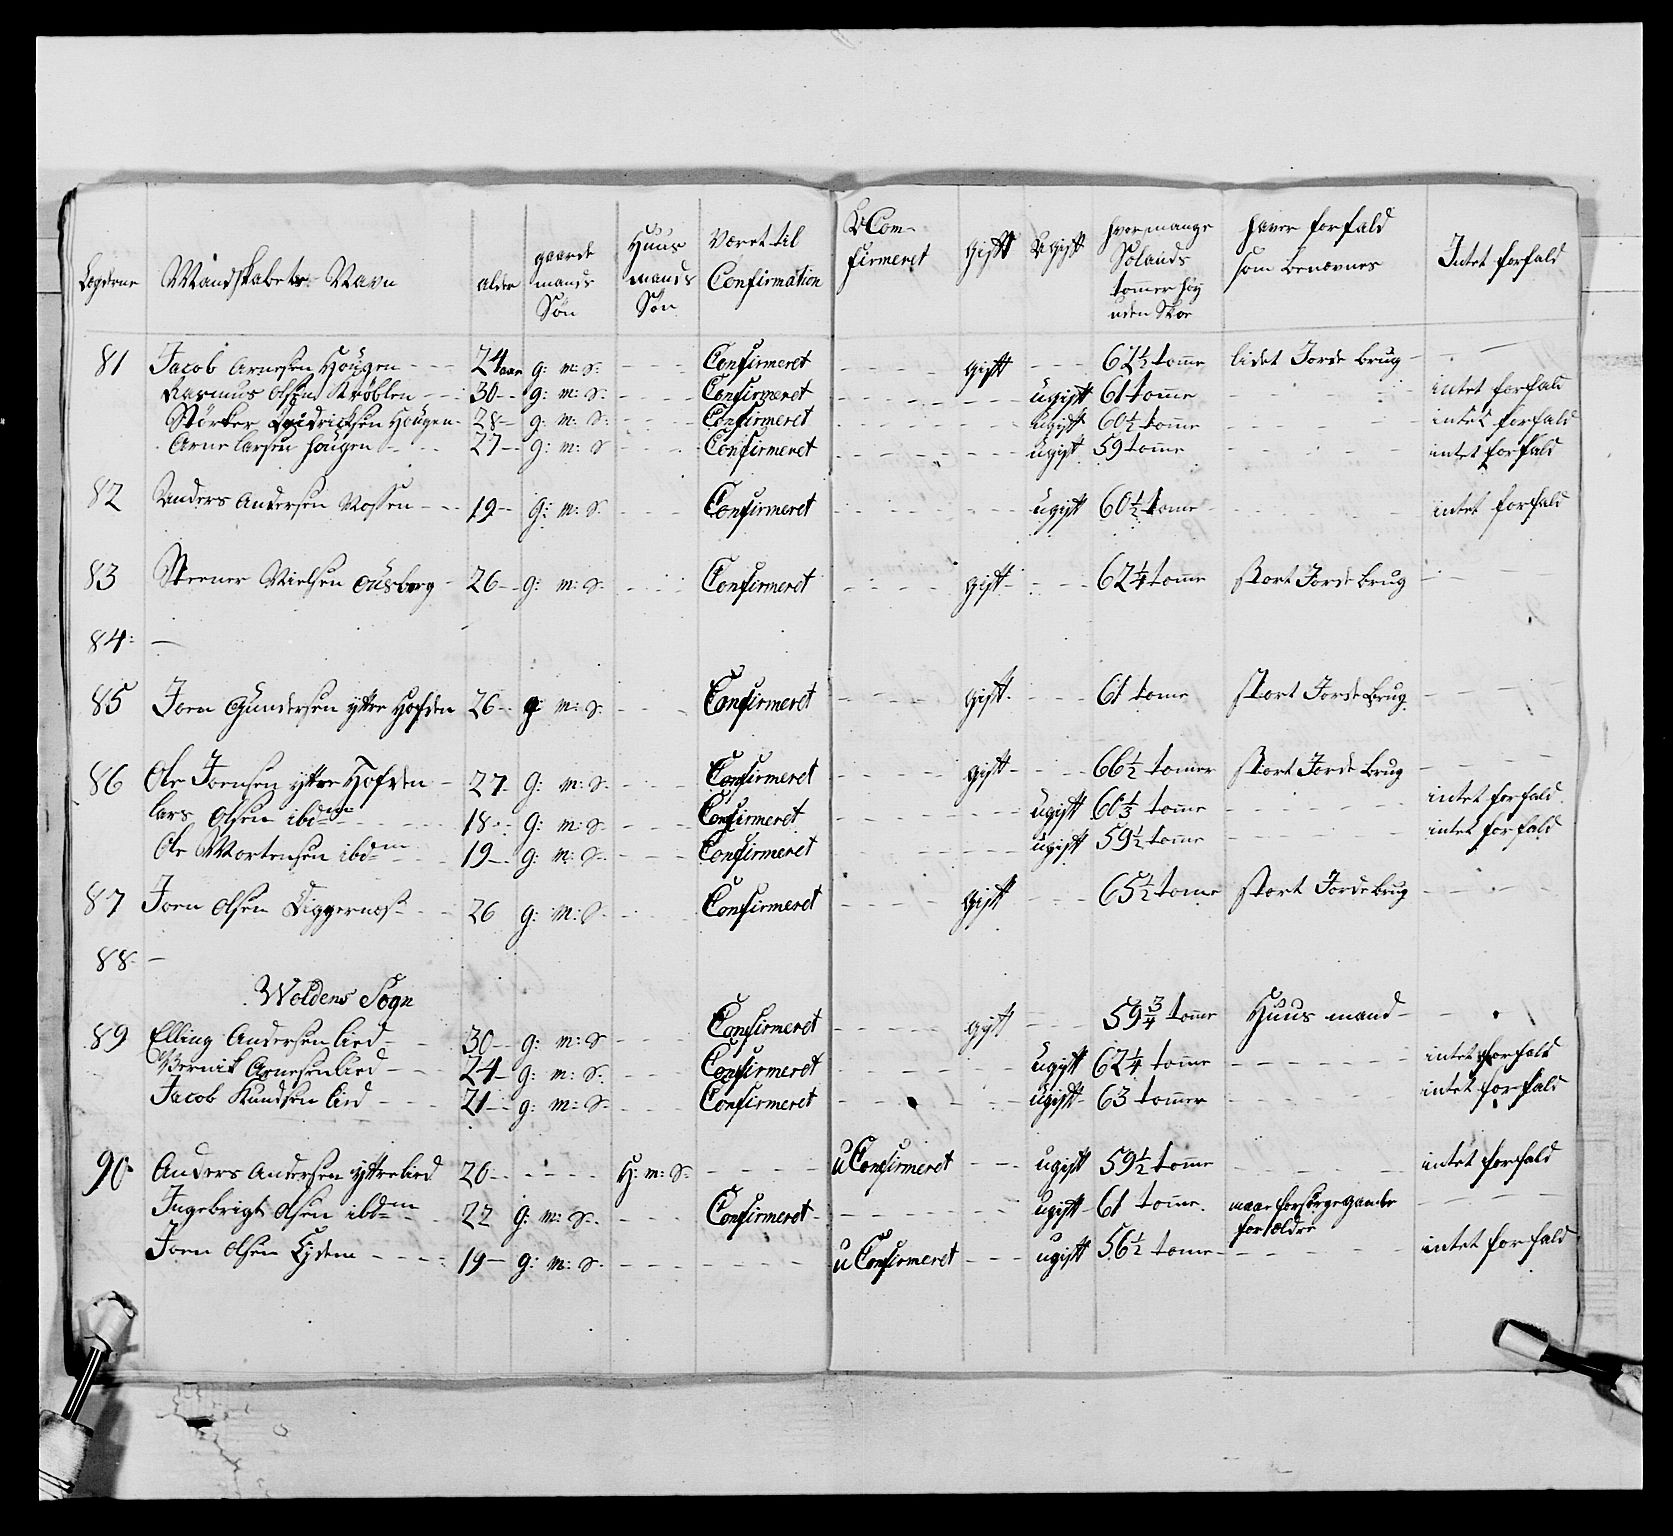 Lægderne Mandskabets Navn alder gaardmands Søn Huusmands Søn Været til Confirmation UConfirmeret gift Ugift hvor mange Sølands tommer høy uden Skoe haver forfald som benævnes Intet forfald
81 Jacob Arnesen Hougen - - 24 aar g: m: S: - - - Confirmeret - - - - gift - - - 62½ tomme lidet Jorde brug - - -
Rasmus Olsen - - 30 - g: m: S: - - - Confirmeret - - - - ugift 61 tomme - - - intet forfald
Størker Hougen - 28 - g: m: S: - - - Confirmeret - - - - ugift 60½ tomme - - - intet forfald
Arne Larsen Hougen - - 27 - g: m: S - - - Confirmeret - - - - ugift 59 tomme - - - intet forfald
82 Anders Andersen Mossen - - 19 - g: m: S. - - - Confirmeret - - - - ugift 60½ tome - - - intet forfald
83 Steener Nielsen - 26 - g: m: S. - - - Confirmeret - - - - gift - - - 62¼ tomme stort Jorde brug - - -
84: -
85 Joen Gundersen yttre Hofden 26 - g m: S. - - - Confirmeret - - - - gift - - - 61 tome stort Jorde Brug - - -
86 Ole Joensen yttre Hofden - 27 - g: m: S. - - - Confirmeret - - - - gift - - - 66½ tomer stort Jorde brug - - -
Lars Olsen ibdm - - 18 - g: m: S. - - - Confirmeret - - - - ugift 60⅓ tomme - - - intet forfald
Ole Mortensen ibdm - - 19 - g: m: S. - - - Confirmeret - - - - ugift 59½ tomme - - - intet forfald
87 Joen Olsen - - 26 g: m: S. - - - Confirmeret - - - - gift - - - 65½ tome stort Jorde brug - - -
88 -
Woldens Sogn
89 Elling Andersen lied - - 30 - g: m: S - - - Confirmeret - - - - gift - - - 59¾ tomme Huus mand - - -
Bernik Arnesen lied - - 24 - g: m: S. - - - Confirmeret - - - - ugift 62¼ tomme - - - intet forfald
Jacob Knudsen lied - - 21 - g: m: S. - - - Confirmeret - - - - ugift 63 tommer - - - intet forfald
90 Anders Andersen yttrelied 20 - - - - H: m: S. - - - - uConfirmeret - - - ugift 59½ tomme - - - intet forfald
Ingebrigt Olsen ibdm - - 22 g: m: S. - - - Confirmeret - - - - ugift 61 tomme maae forsørge gamle forældre - - -
Joen Olsen - - - 19 - g: m: S. - - - - - - - u Confirmeret - - - ugift 56½ tome - - - intet forfald